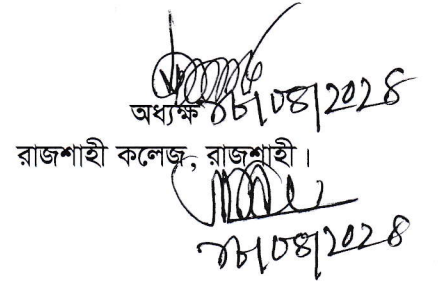 অধ্যক্ষ ১৮/০৪/২০২৪
রাজশাহী কলেজ, রাজশাহী।
১৮/০৪/২০২৪